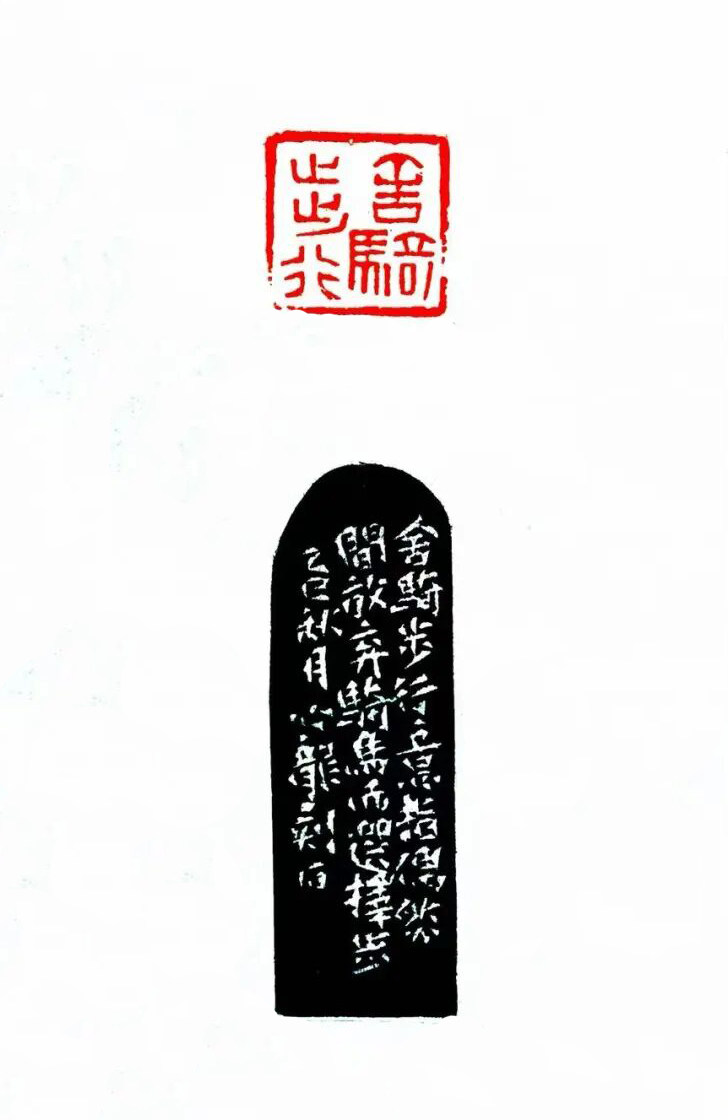 舍騎
步行
舍騎步行意指偶然
間放弃騎馬而選擇步
乙巳秋月心龍刻